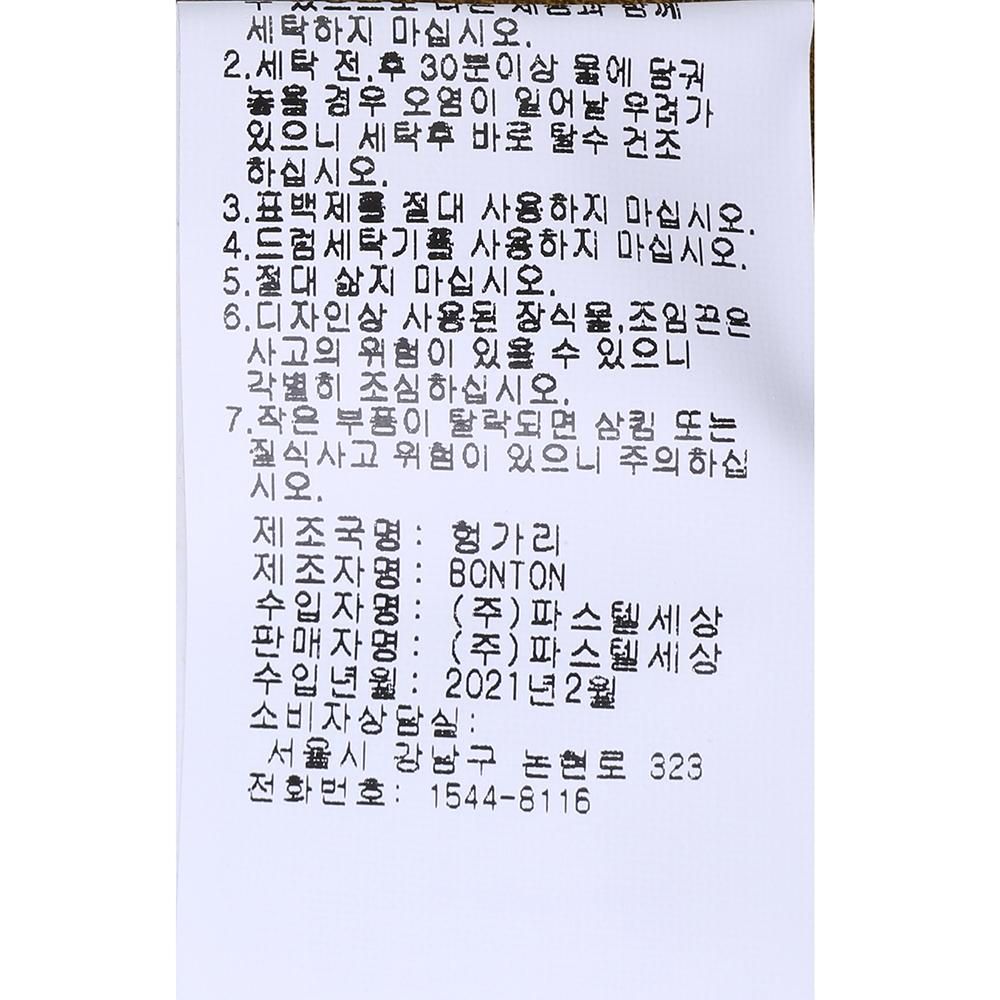 수 있으므로 다른 제품과 함께
세탁하지 마십시오.
2.세탁 전.후 30분이상 물에 담궈
놓을 경우 오염이 일어날 우려가
있으니 세탁후 바로 탈수 건조
하십시오.
3.표백제를 절대 사용하지 마십시오.
4.드럼세탁기를 사용하지 마십시오.
5.절대 삶지 마십시오.
6.디자인상 사용된 장식물,조임끈은
사고의 위험이 있을 수 있으니
각별히 조심하십시오.
7.작은 부품이 탈락되면 삼킴 또는
질식사고 위험이 있으니 주의하십
시오.
제조국명: 헝가리
제조자명: BONTON
수입자명: (주)파스텔세상
판매자명: (주)파스텔세상
수입년월: 2021년2월
소비자상담실:
서울시 강남구 논현로 323
전화번호: 1544-8116